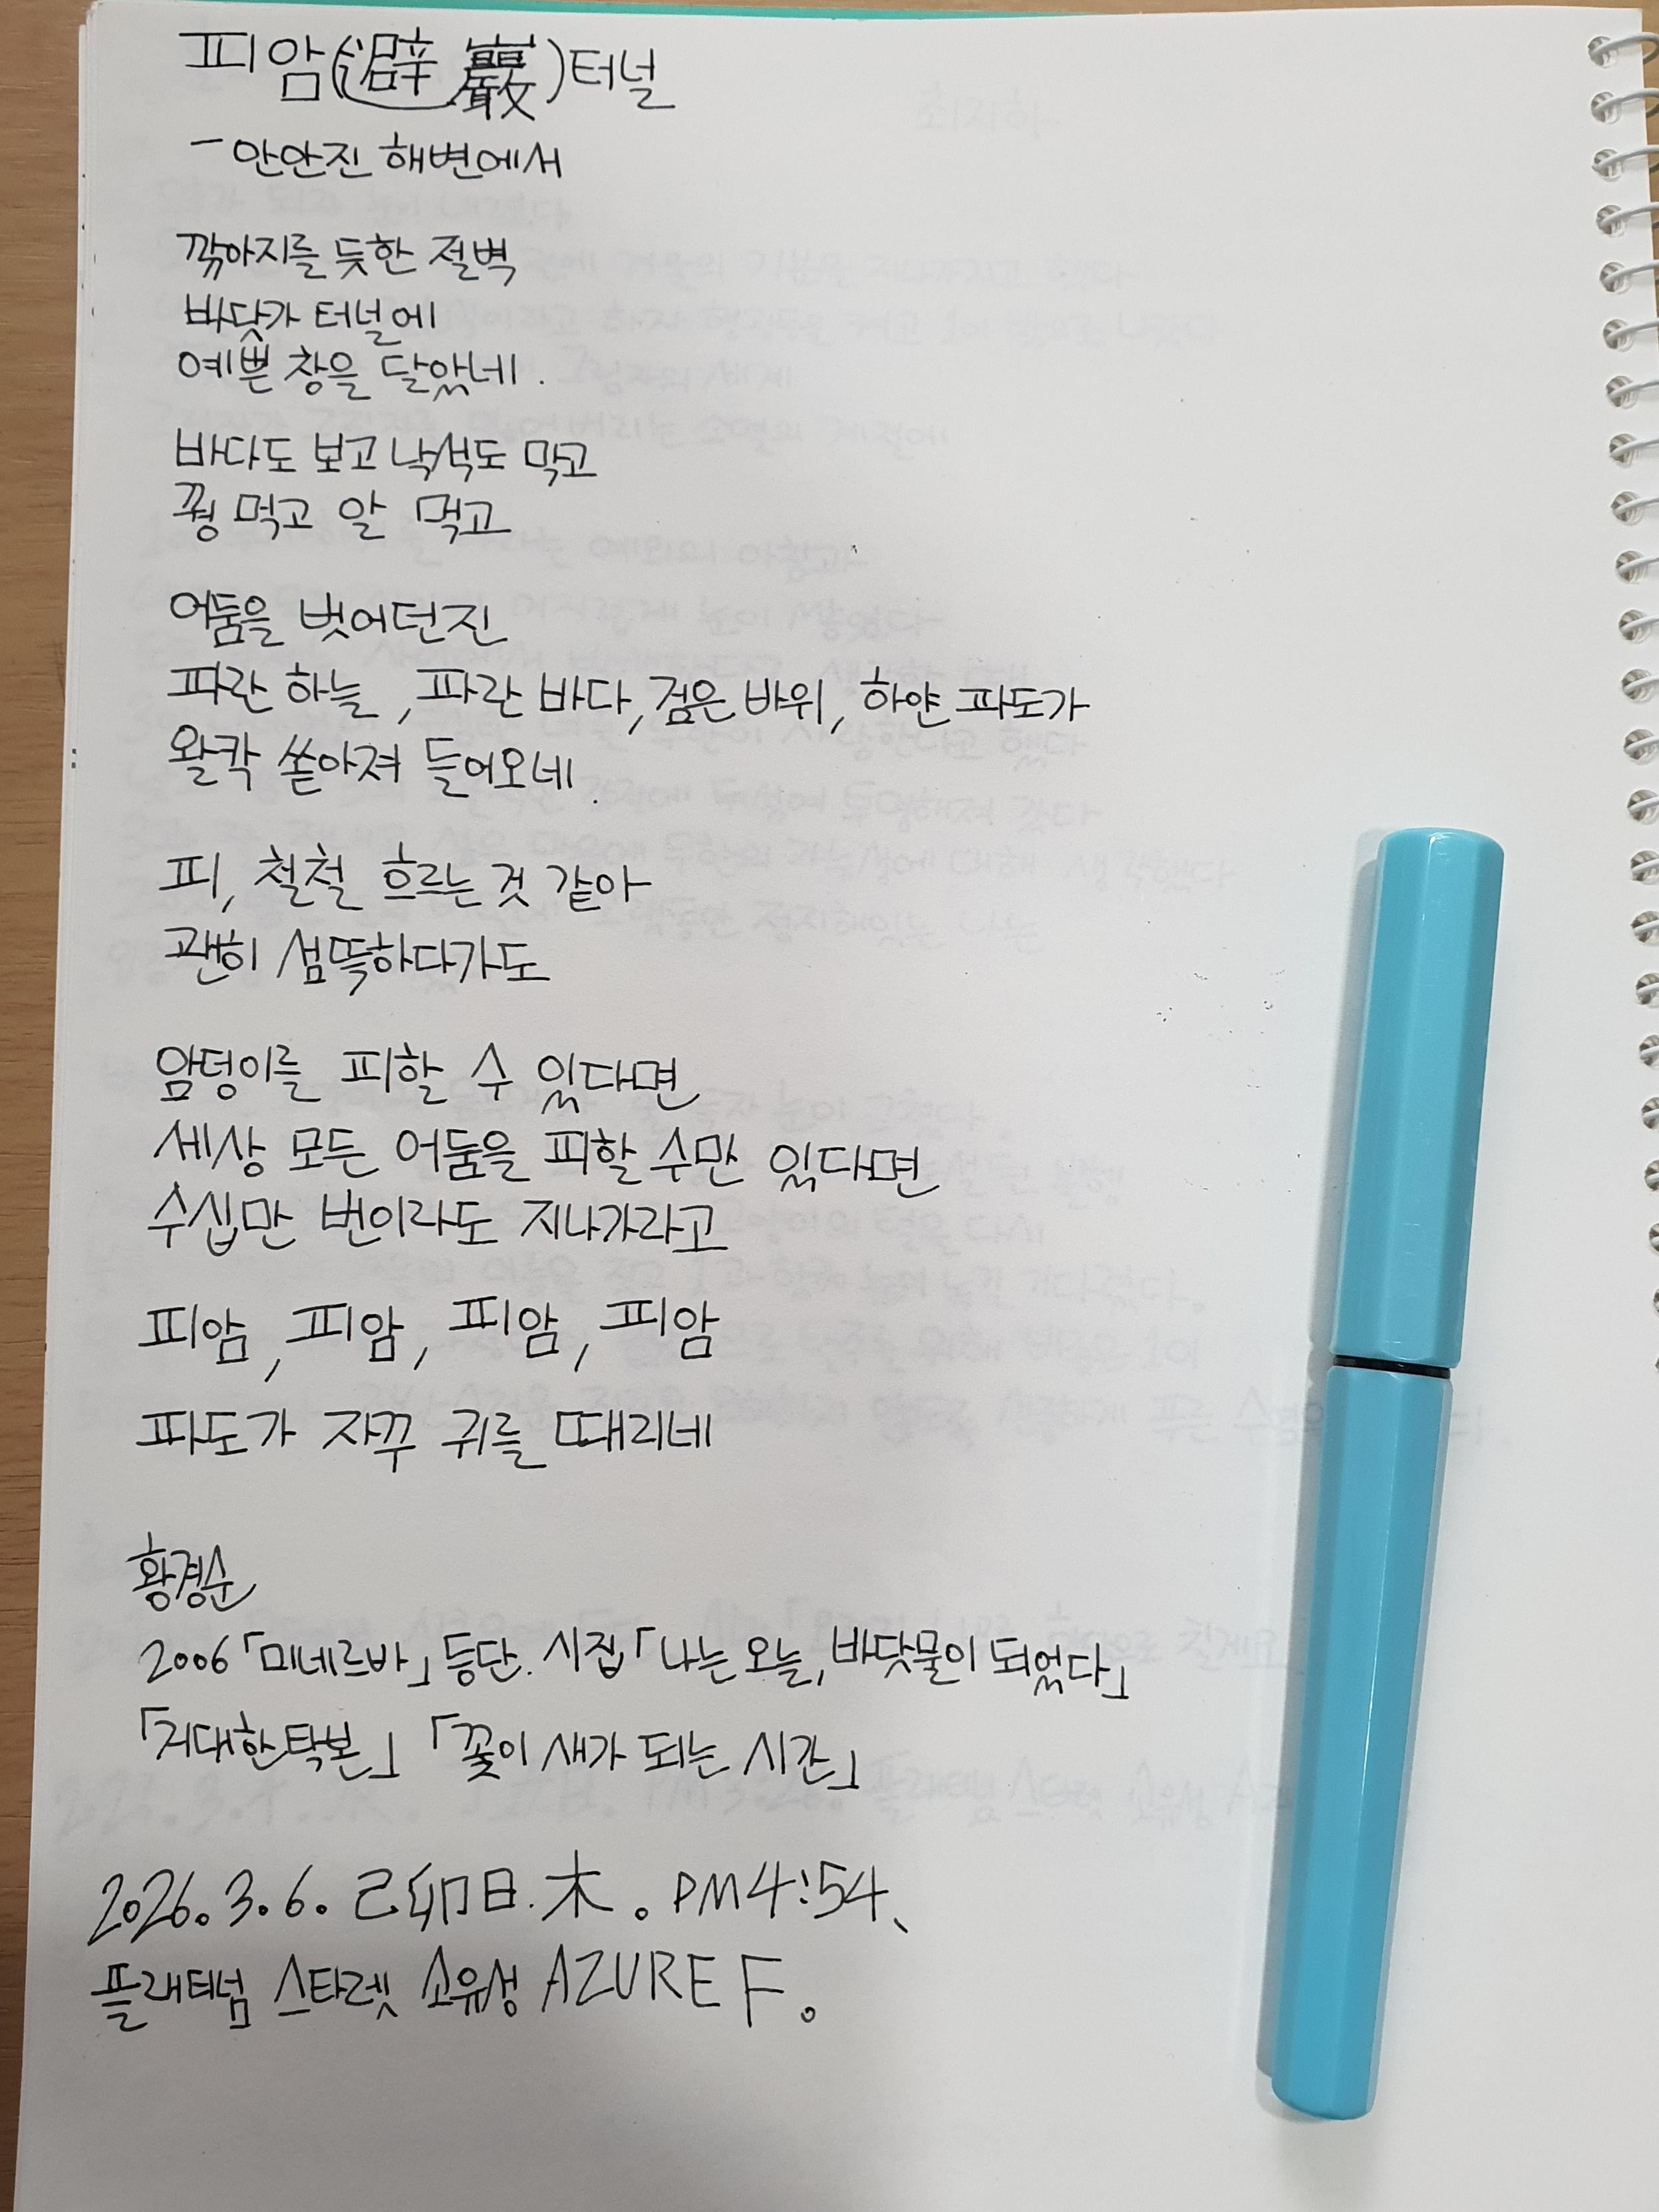 피암(避巖)터널
- 안안진 해변에서
깎아지를 듯한 절벽
바닷가 터널에
예쁜 창을 달았네.
바다도 보고 낙석도 막고
꿩 먹고 알 먹고
어둠을 벗어던진
파란 하늘, 파란 바다, 검은 바위, 하얀 파도가
왈칵 쏟아져 들어오네.
피, 철철 흐르는 것 같아
괜히 섬뜩하다가도
암덩이를 피할 수 있다면
세상 모든 어둠을 피할 수만 있다면
수십만 번이라도 지나가라고
피암, 피암, 피암, 피암
파도가 자꾸 귀를 때리네
황경순
2006「미네르바」등단. 시집「나는 오늘, 바닷물이 되었다」
「거대한 탁본」「꽃이 새가 되는 시간」
2026.3.6. 己卯日.木. PM4:54、
플래티넘 스타렛 소유성 AZURE F.